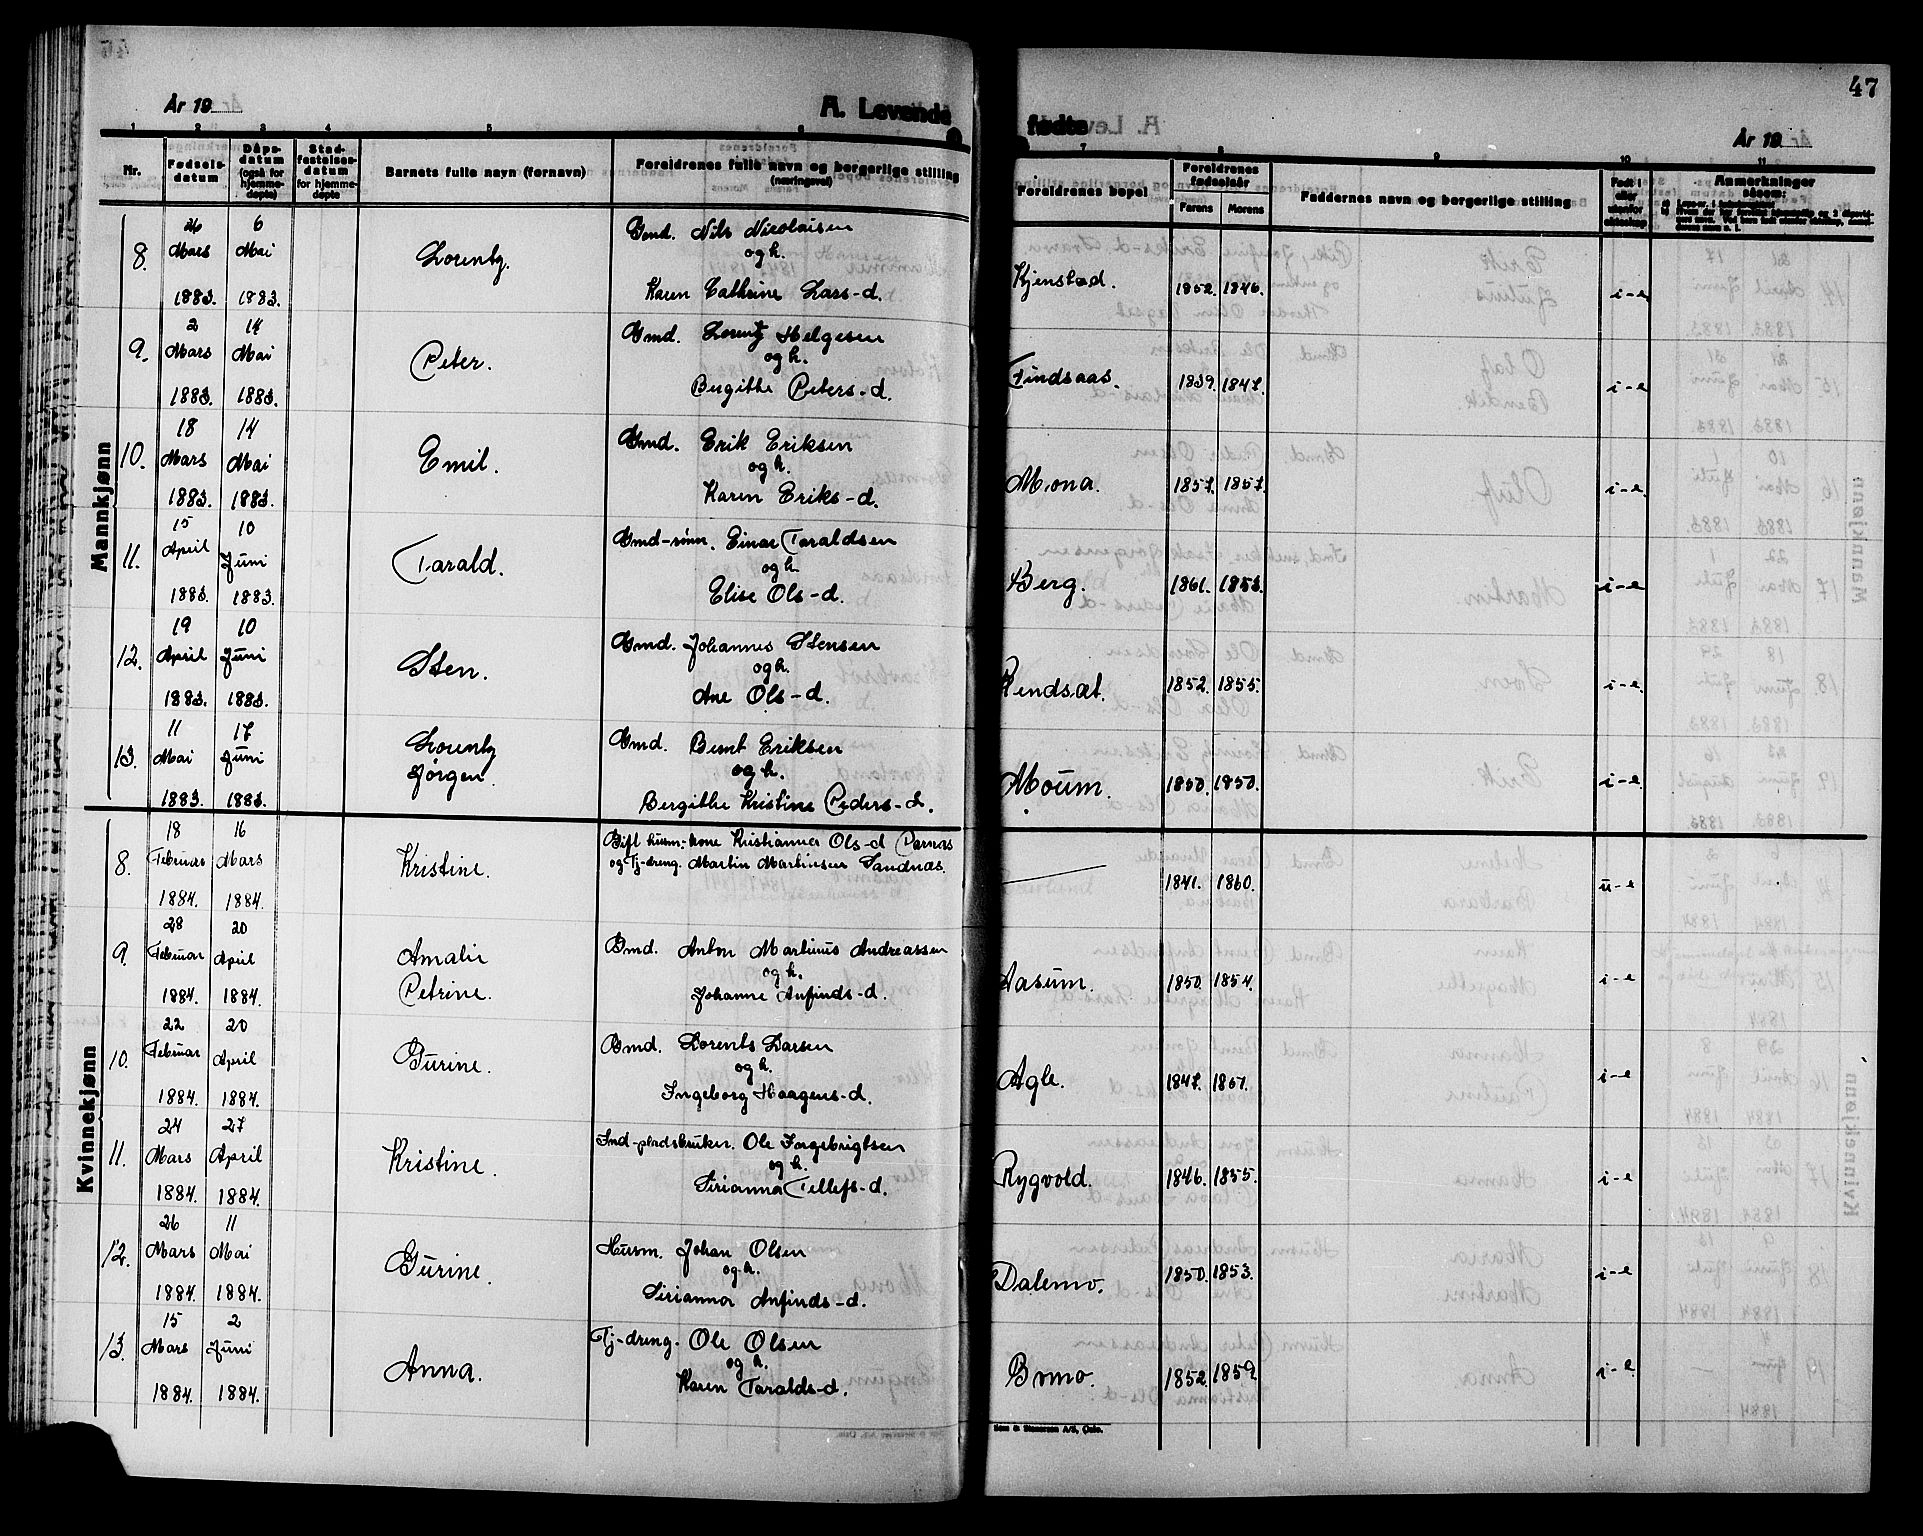 47
År 19
A. Levende fødte
År 19
1 2 3 4 5 6 7 8 9 10 11
Nr.
Fødsels-datum
Dåps-datum (også for hjemme-døpte)
Stad-festelses-datum for hjemme-døpte
Barnets fulle navn (fornavn)
Foreldrenes fulle navn og borgerlige stilling (næringsvei)
Foreldrenes bopel
Foreldrenes fødselsår
Farens Morens
Faddernes navn og borgerlige stilling
Født i eller utenfor ekteskap
Anmerkninger såsom:
Mannkjønn
8. 26 Mars 1883. 6 Mai 1883. Lorentz. Gmd. Nils Nicolaisen
og h.
Karen Cathrine Lars-d. Kjenstad. 1852. 1846. i-e
9. 2 Mars 1883. 14 Mai 1883. Peter. Gmd. Lorentz Helgesen
og h.
Bergithe Peters-d. Findsaas. 1839. 1847. i-e
10. 18 Mars 1883. 14 Mai 1883. Emil. Gmd. Erik Eriksen
og h.
Karen Eriks-d. Mona. 1857. 1857. i-e
11. 15 April 1883. 10 Juni 1883. Tarald. Gmd-sønn. Einar Taraldsen
og h.
Elise Ols-d. Berg. 1861. 1853. i-e
12. 19 April 1883. 10 Juni 1883. Sten. Gmd. Johannes Stensen
og h.
Ane Ols-d. Rendsæt. 1852. 1855. i-e
13. 11 Mai 1883. 17 Juni 1883. Lorentz
Jørgen. Gmd. Bernt Eriksen
og h.
Bergithe Kristine Peders-d. Moum. 1850. 1850. i-e
Kvinnekjønn
8. 18 Februar 1884. 16 Mars 1884. Kristine. Gift husm.-kone Kristianna Ols-d Parnas
og Tj-dreng. Martin Martinsen Sandnas. 1841. 1860. u-e
9. 28 Februar 1884. 20 April 1884. Amalie
Petrine. Gmd. Anton Martinus Andreassen
og h.
Johanne Anfinds-d. Aasum. 1850. 1854. i-e
10. 22 Februar 1884. 20 April 1884. Gurine. Gmd. Lorents Larsen
og h.
Ingeborg Haagens-d. Agle. 1847. 1857. i-e
11. 24 Mars 1884. 27 April 1884. Kristine. Ind-pladsbruker. Ole Ingebrigtsen
og h.
Sirianna Tellefs-d. Rygvold. 1846. 1855. i-e
12. 26 Mars 1884. 11 Mai 1884. Gurine. Husm. Johan Olsen
og h.
Sirianna Anfinds-d. Dalemo. 1850. 1853. i-e
13. 15 Mars 1884. 2 Juni 1884. Anna. Tj-dreng. Ole Olsen
og h.
Karen Taralds-d. Bomo. 1852. 1859. i-e
Sem & Stenersen A/S, Oslo.